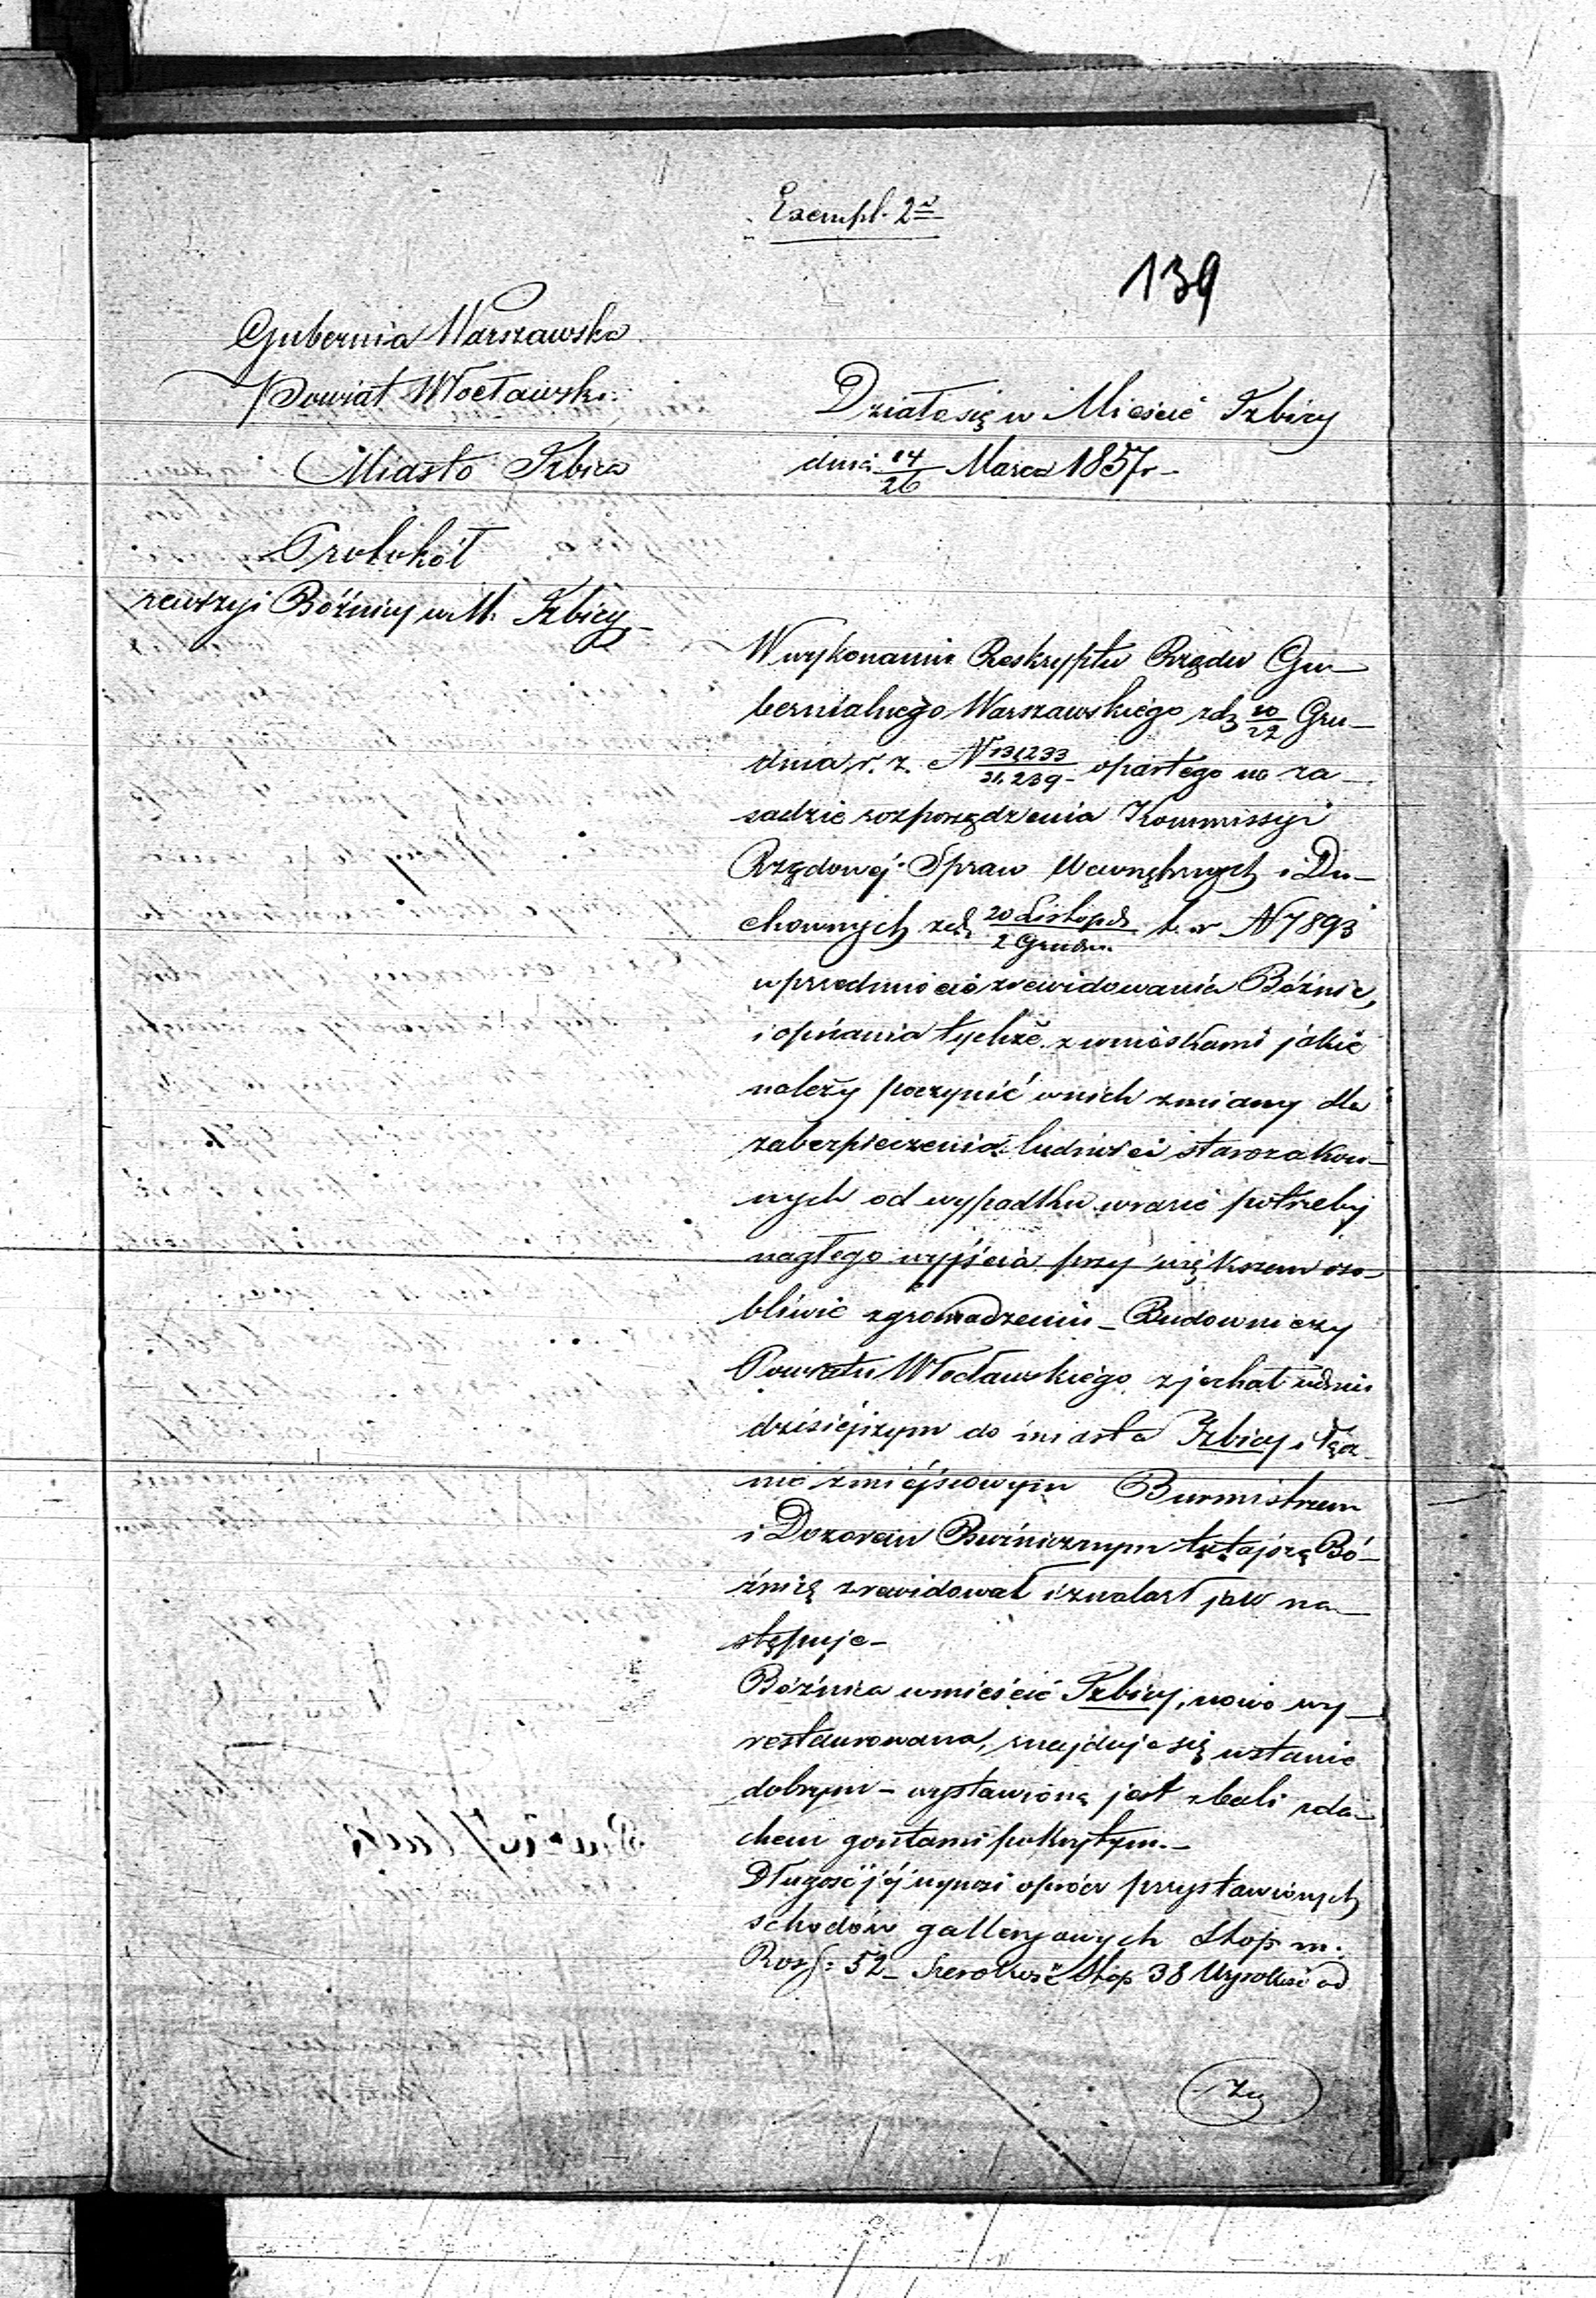 Exempl. 2º
139
Gubernia Warszawska
Powiat Włocławski
Miasto Izbica
Protokół
rewizyi Bóźnicy w M. Izbicy
Działo się w Mieście Izbicy
dnia 14/26 Marca 1857 r
W wykonaniu Reskryptu Rządu Gu-
bernialnego Warszawskiego z d. 10/22 Gru-
dnia r. z. N opartego na za-
sadzie rozporządzenia Kommissyi
Rządowej Spraw Wewnętrznych i Du-
chownych z d. 20 Listopada/2 Grudnia t. r N 7893
w przedmiocie zrewidowania Bóźnic,
i opisania tychże z wnioskami jakie
należy poczynić w nich zmiany dla
zabezpieczenia ludności starozakon-
nych od wypadku w razie potrzeby
nagłego wyjścia przy większem oso-
bliwie zgromadzeniu – Budowniczy
Powiatu Włocławskiego zjechał w dniu
dzisiejszym do miasta Izbicy i łącz-
nie z miejscowym Burmistrzem
i Dozorem Bóźniczym tutejszą Bó-
źnicę zrewidował i znalazł jak na-
stępuje –
Bóźnica w mieście Izbicy, nowo wy-
restaurowana, znajduje się w stanie
dobrym – wystawioną jest z bali z da-
chem gontami pokrytym. –
Długość jéj wynosi oprócz przystawionych
schodów galleryowych stop m:
Ross: 52 – Szerokość stóp 38 Wysokość od